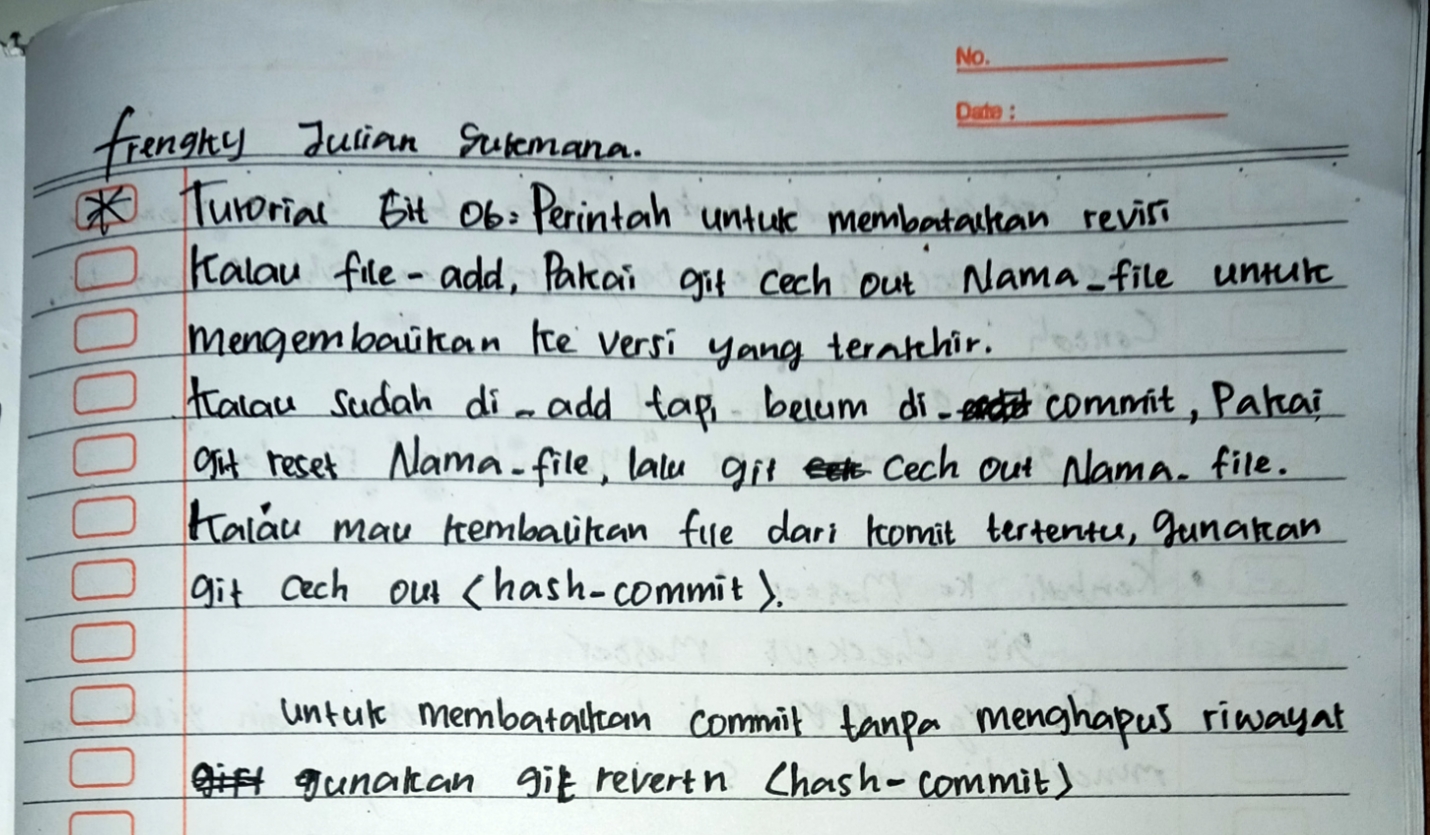 No.
Date :
Frengky Julian Sukmana.
* Tutorial Git 06: Perintah untuk membatalkan revisi
Kalau file-add, Pakai git cech out Nama_file untuk
mengembalikan ke versi yang terakhir.
Kalau sudah di-add tapi belum di- commit, Pakai
git reset Nama-file, lalu git cech out Nama-file.
Kalau mau kembalikan file dari komit tertentu, gunakan
git cech out <hash-commit>.
untuk membatalkan commit tanpa menghapus riwayat
gunakan git revertn <hash-commit>